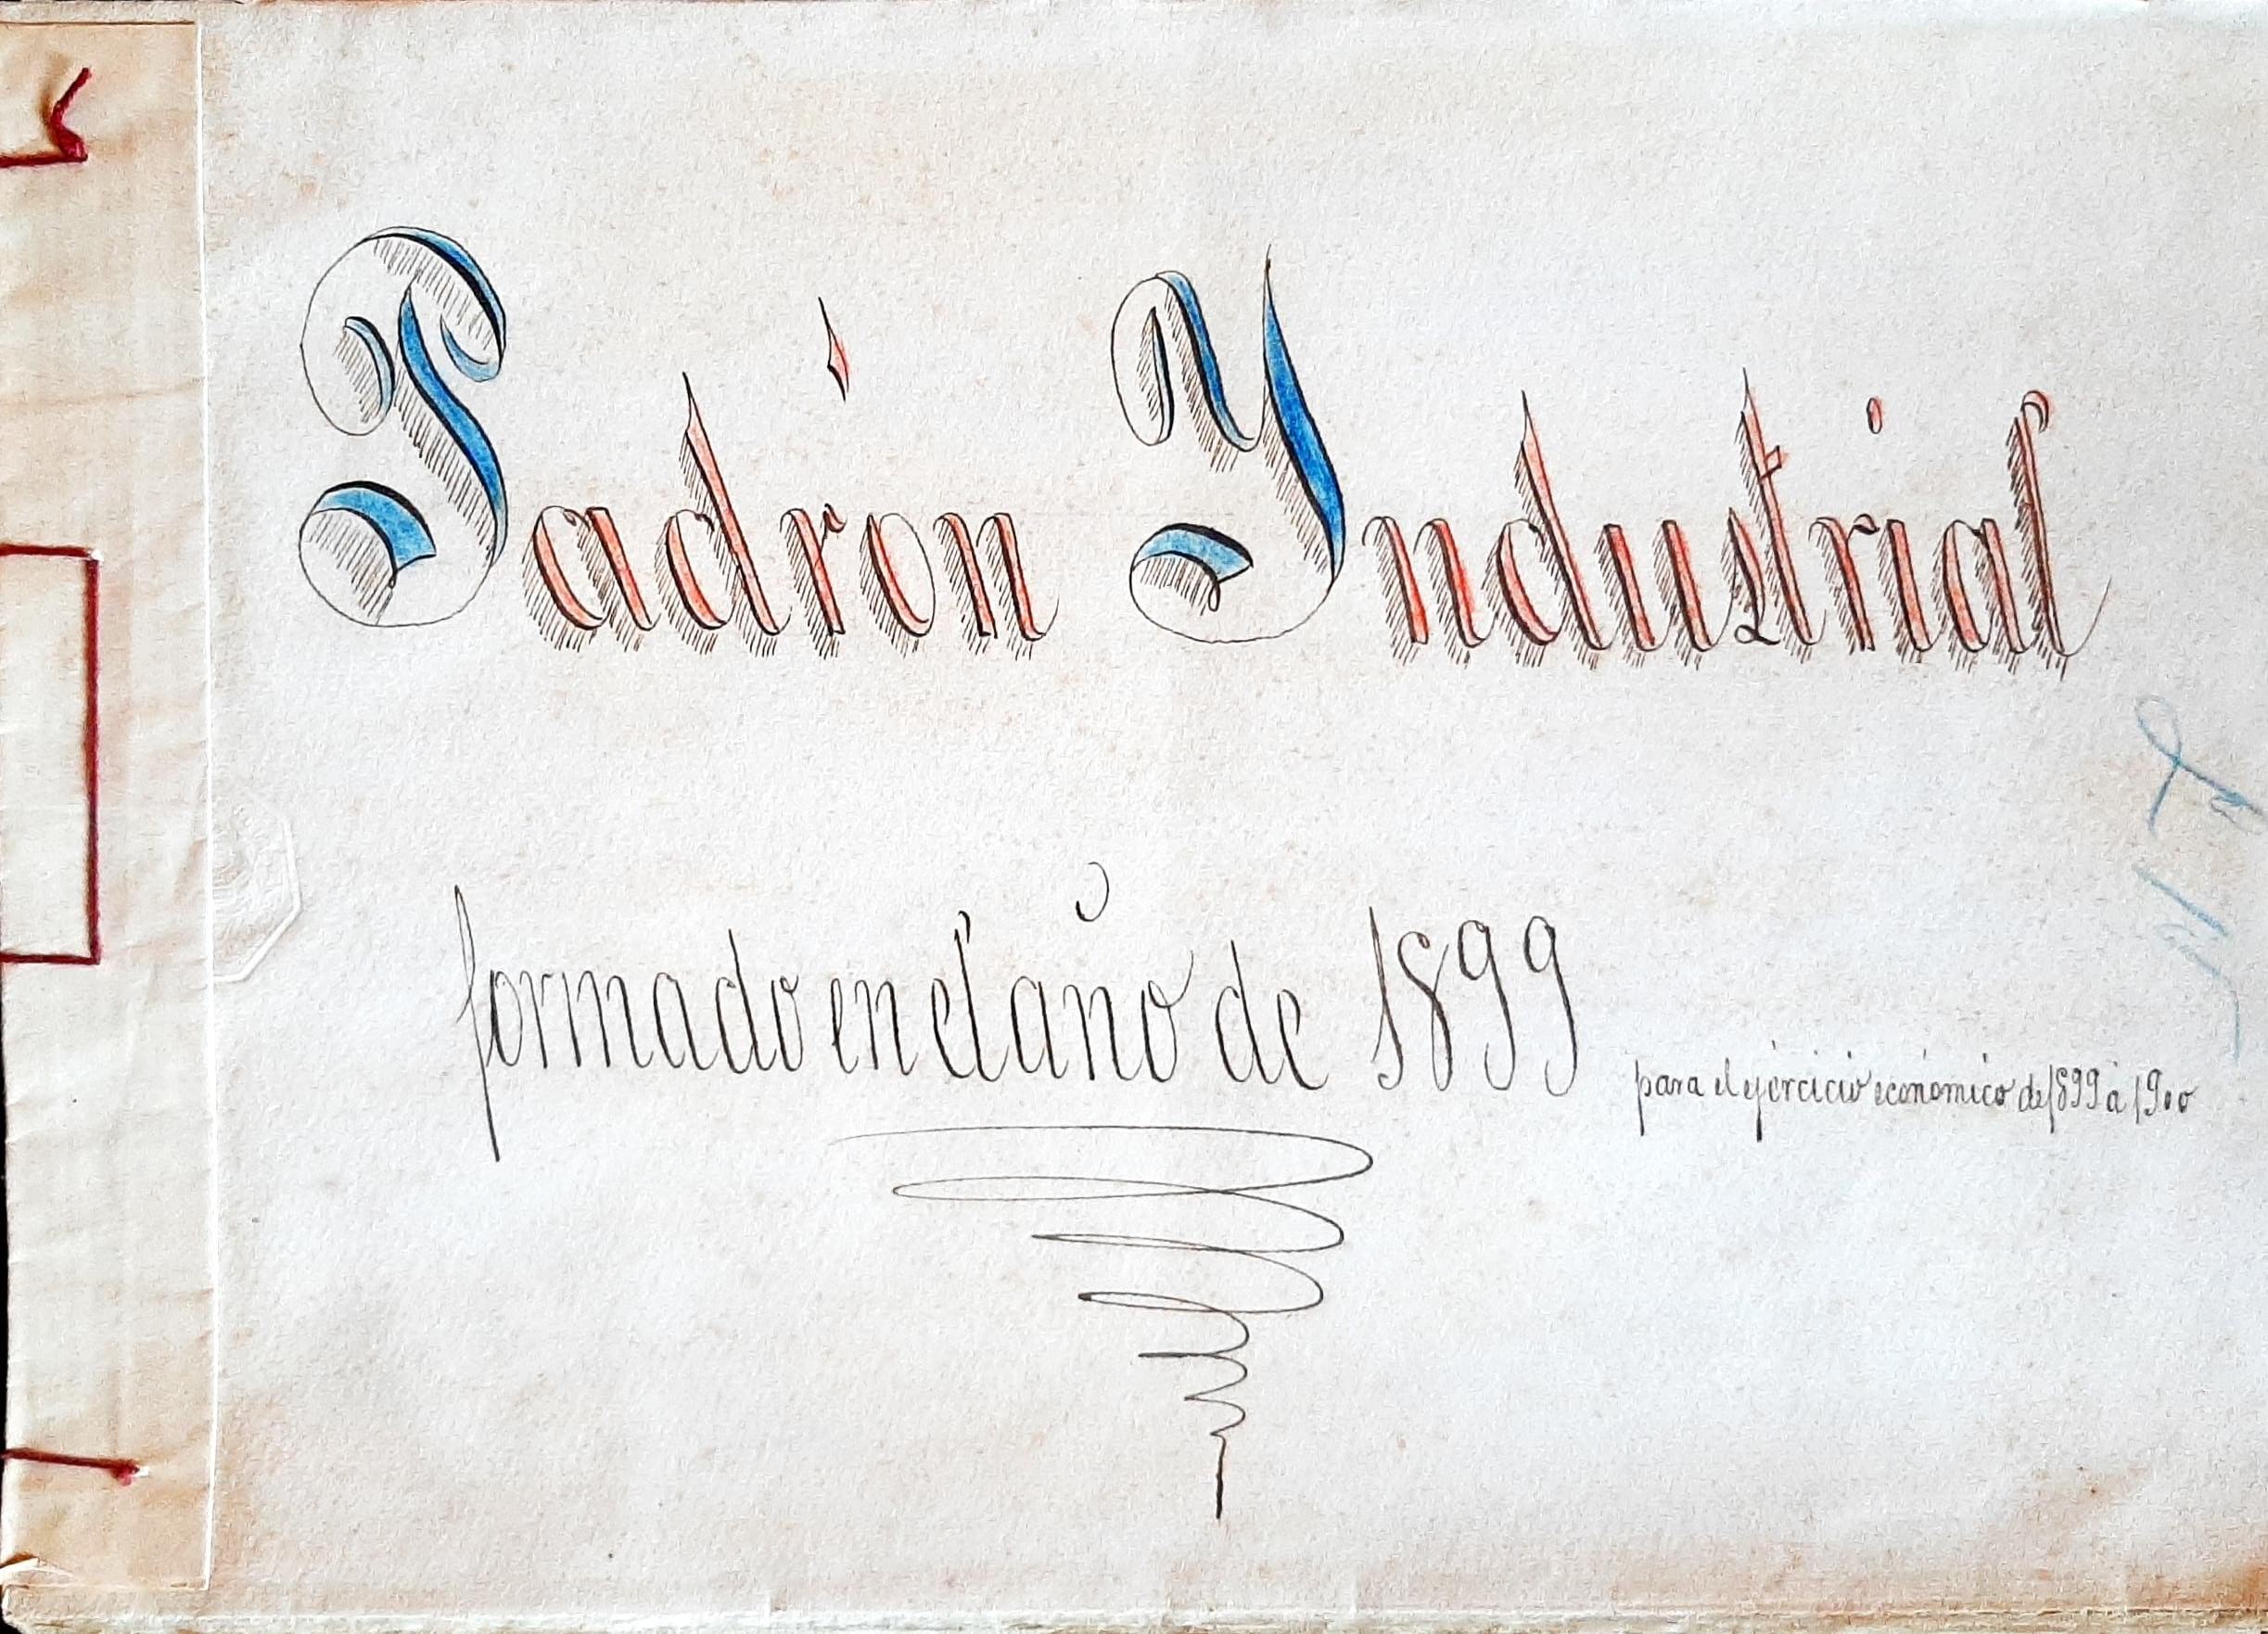 Padrón Yndustrial
formado en el año de 1899
para el ejercicio económico de 1899 á 1900